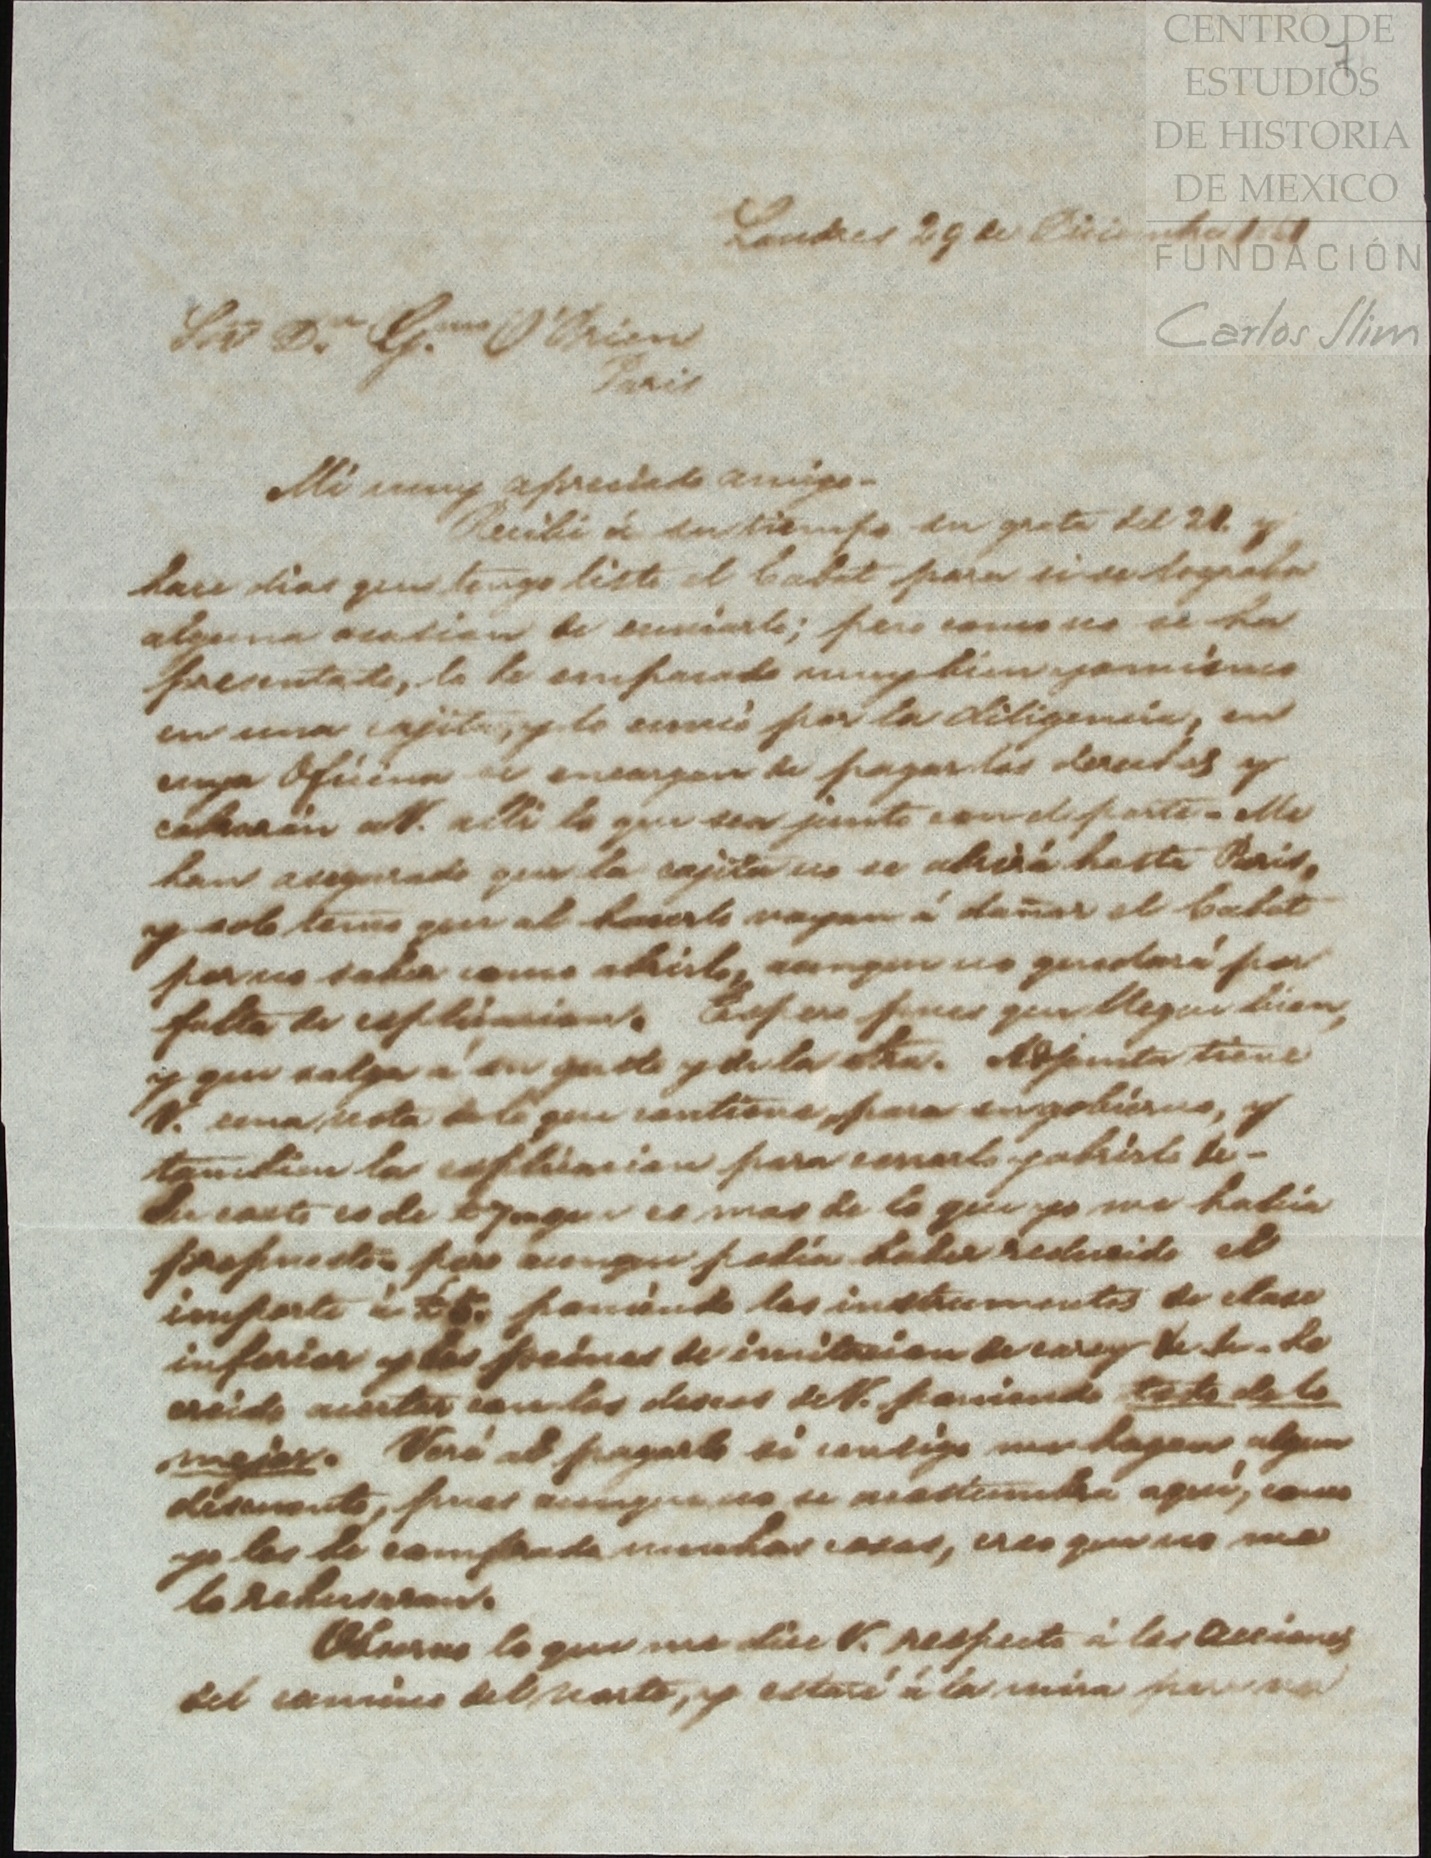 CENTRO DE
ESTUDIOS
DE HISTORIA
DE MEXICO
FUNDACIÓN
Carlos Slim
7
Londres 29 de Diciembre 1861
Sor Dn Gmo O'Brien
Paris
Mi muy apreciado amigo-
Recibi á su tiempo su grata del 21. y
hace dias que tengo listo el Cabat para si se lograba
alguna ocasion de enviarlo; pero como no se ha
presentado, lo he empacado muy bien yo mismo
en una cajita, y lo envio por la diligencia, en
cuya Oficina se encargan de pagar los derechos y
cobrarán a V. alli lo que sea junto con el porte- Me
han asegurado que la cajita no se abrirá hasta Paris,
y solo temo que al hacerlo vayan á dañar el Cabat
por no saber como abrirlo, aunque no quedará por
falta de esplicacion. Espero pues que llegue bien,
y que salga á su gusto y de la otra. Adjunta tiene
V. una nota de lo que contiene, para su gobierno, y
tambien la esplicacion para cerrarlo y abrirlo de-
Su costo es de £7 que es mas de lo que yo me habia
propuesto- pero aunque podia haber reducido el
importe á £5. poniendo los instrumentos de clase
inferior y los peines de imitacion de carey &c. &c. he
creido acertar con los deseos de V. poniendo todo de lo
mejor. Veré al pagarlo si consigo me hagan algun
descuento, pues aunque no se acostumbra aquí, como
yo les he comprado muchas cosas, creo que no me
lo rehusaran.
Observo lo que me dice V. respecto á las acciones
del camino del norte, y estaré á la mira para ver